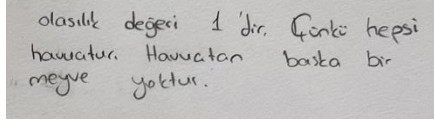 olasılık değeri 1'dir. Çünkü hepsi
havuctur. Havuctan baska bir
meyve yoktur.